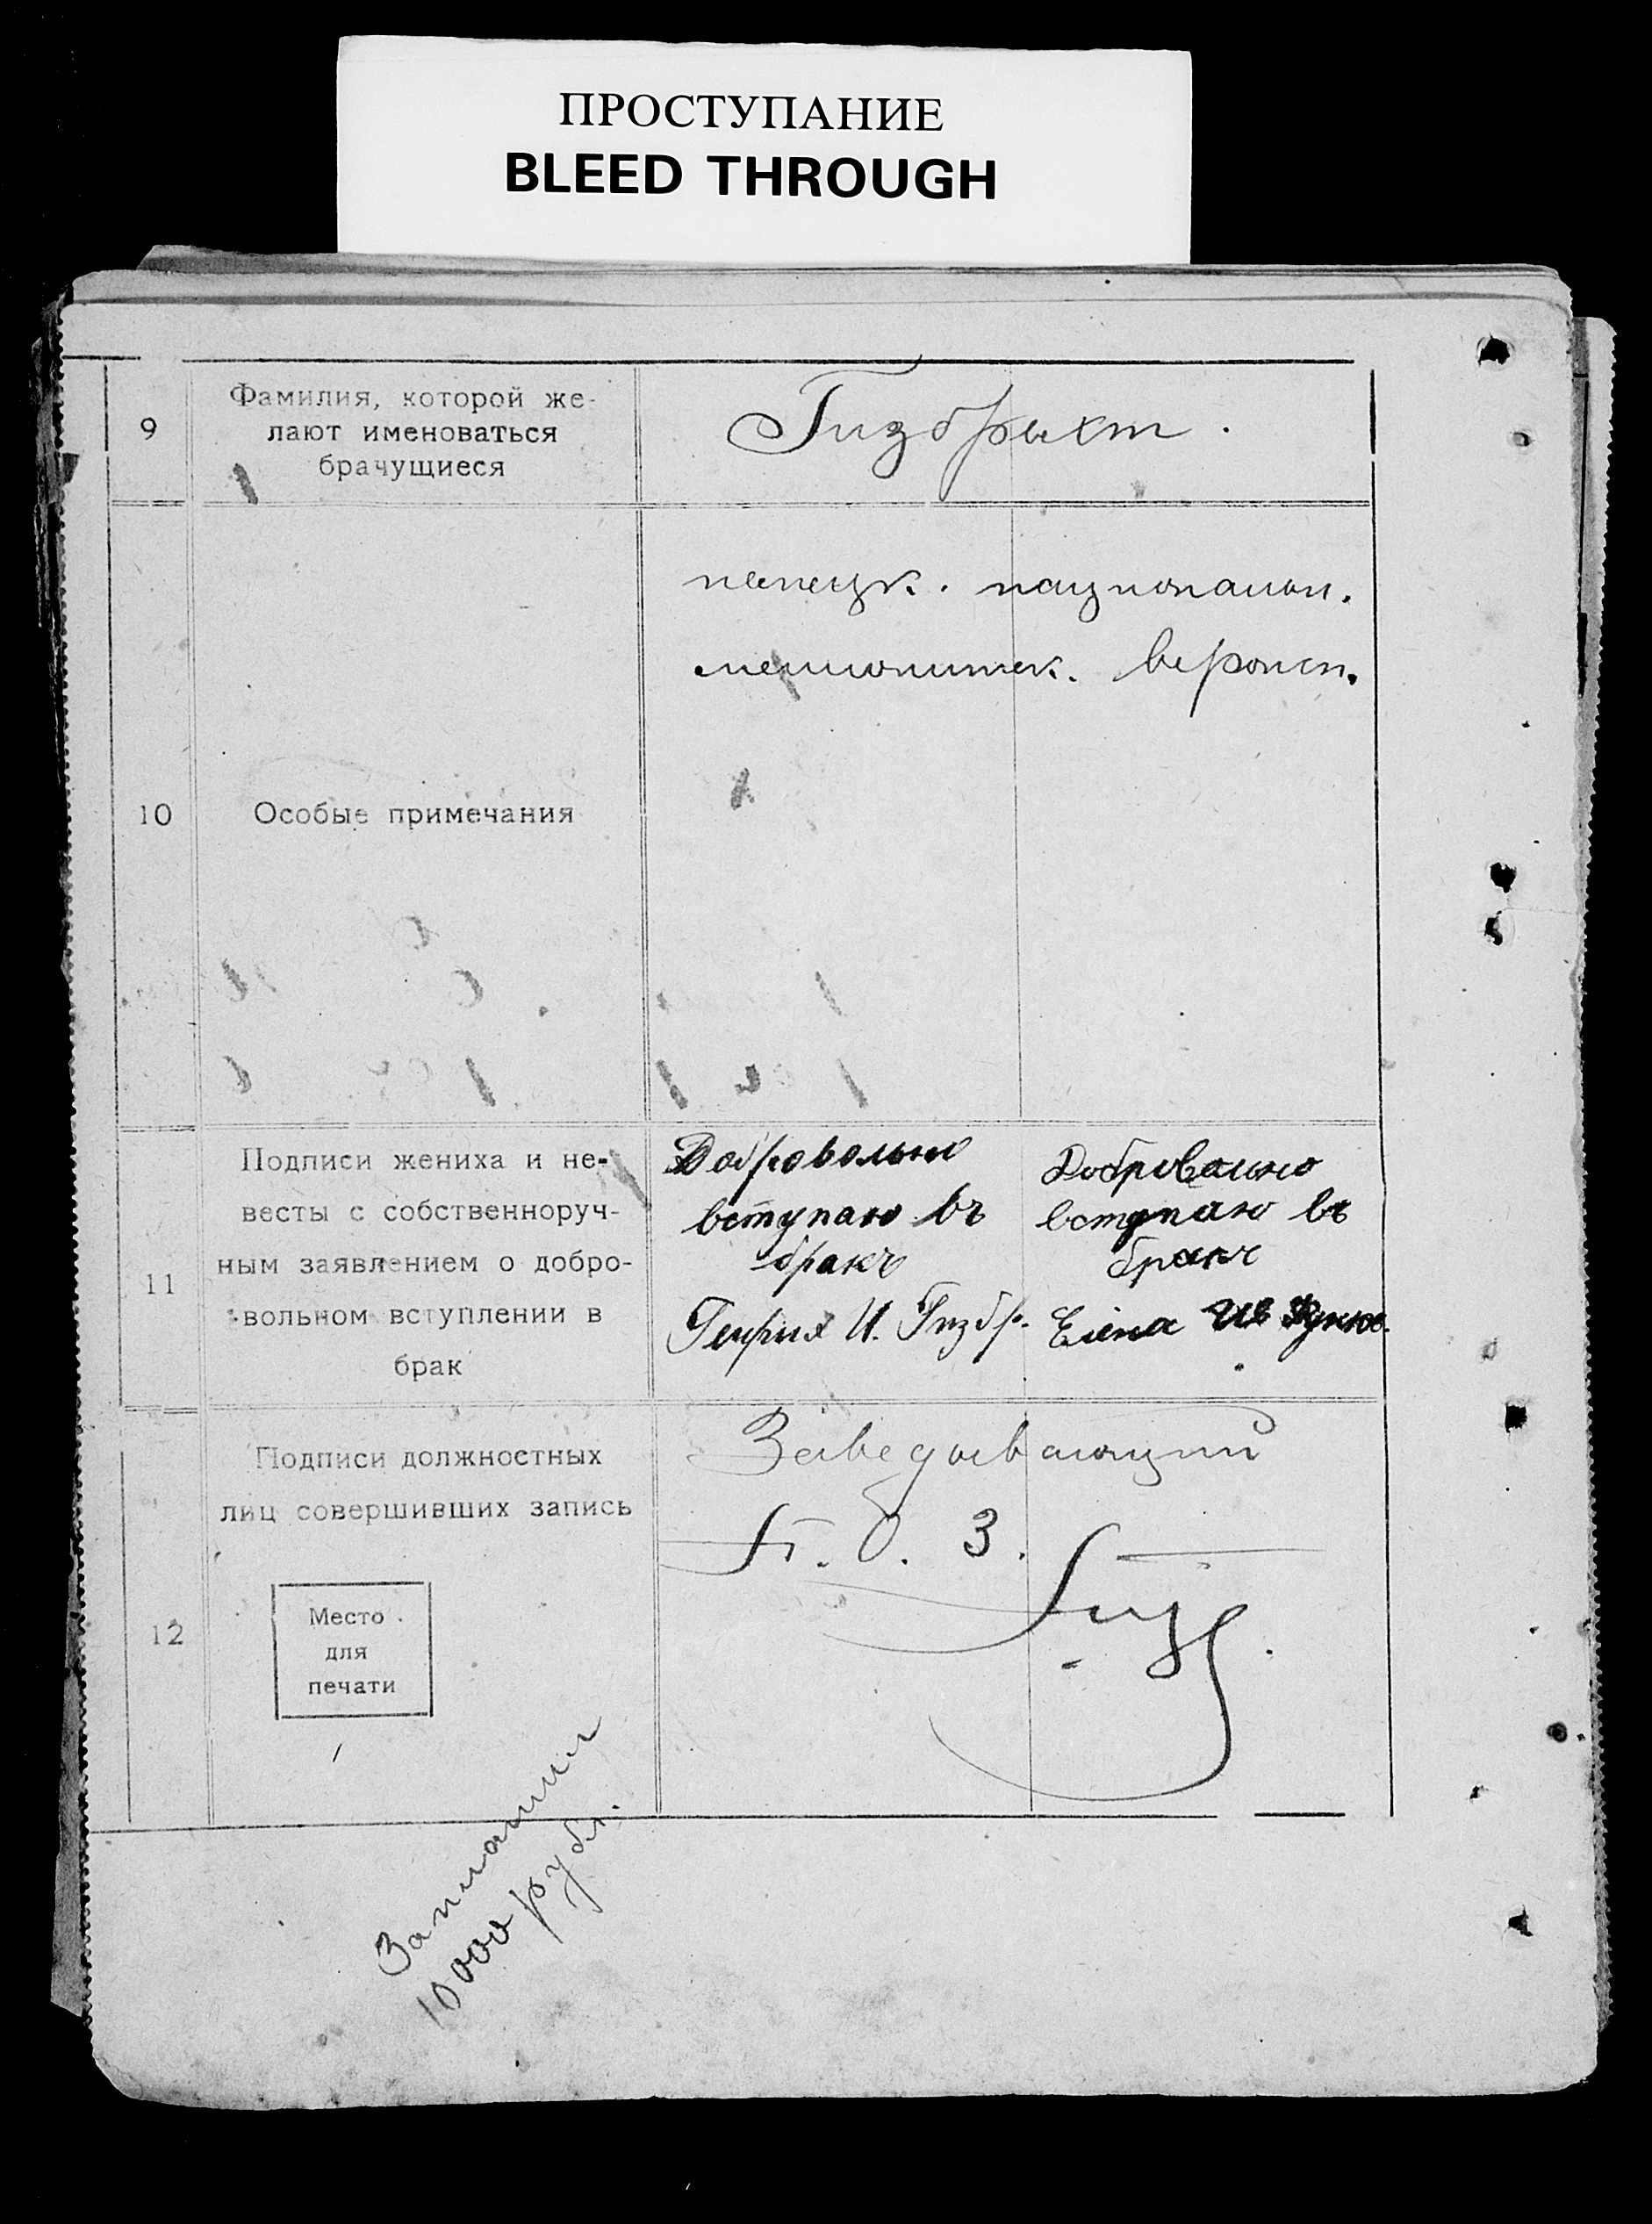 ПРОСТУПАНИЕ
BLEED THROUGH
9
Фамилия, которой же-
лают именоваться
брачущиеся
Гизбрехт.
10
Особые примечания
немецк. национальн.
меннонитск. вероисп.
11
Подписи жениха и не-
весты с собственноруч-
ным заявлением о добро-
вольном вступлении в
брак
Добровольно
вступаю въ
бракъ
Генрих И. Гизбр.
Добровольно
вступаю въ
бракъ
Елена Ив
12
Подписи должностных
лиц совершивших запись
Место
для
печати
Заведывающий
П. О. З.
Заплатил
10000 рубл.